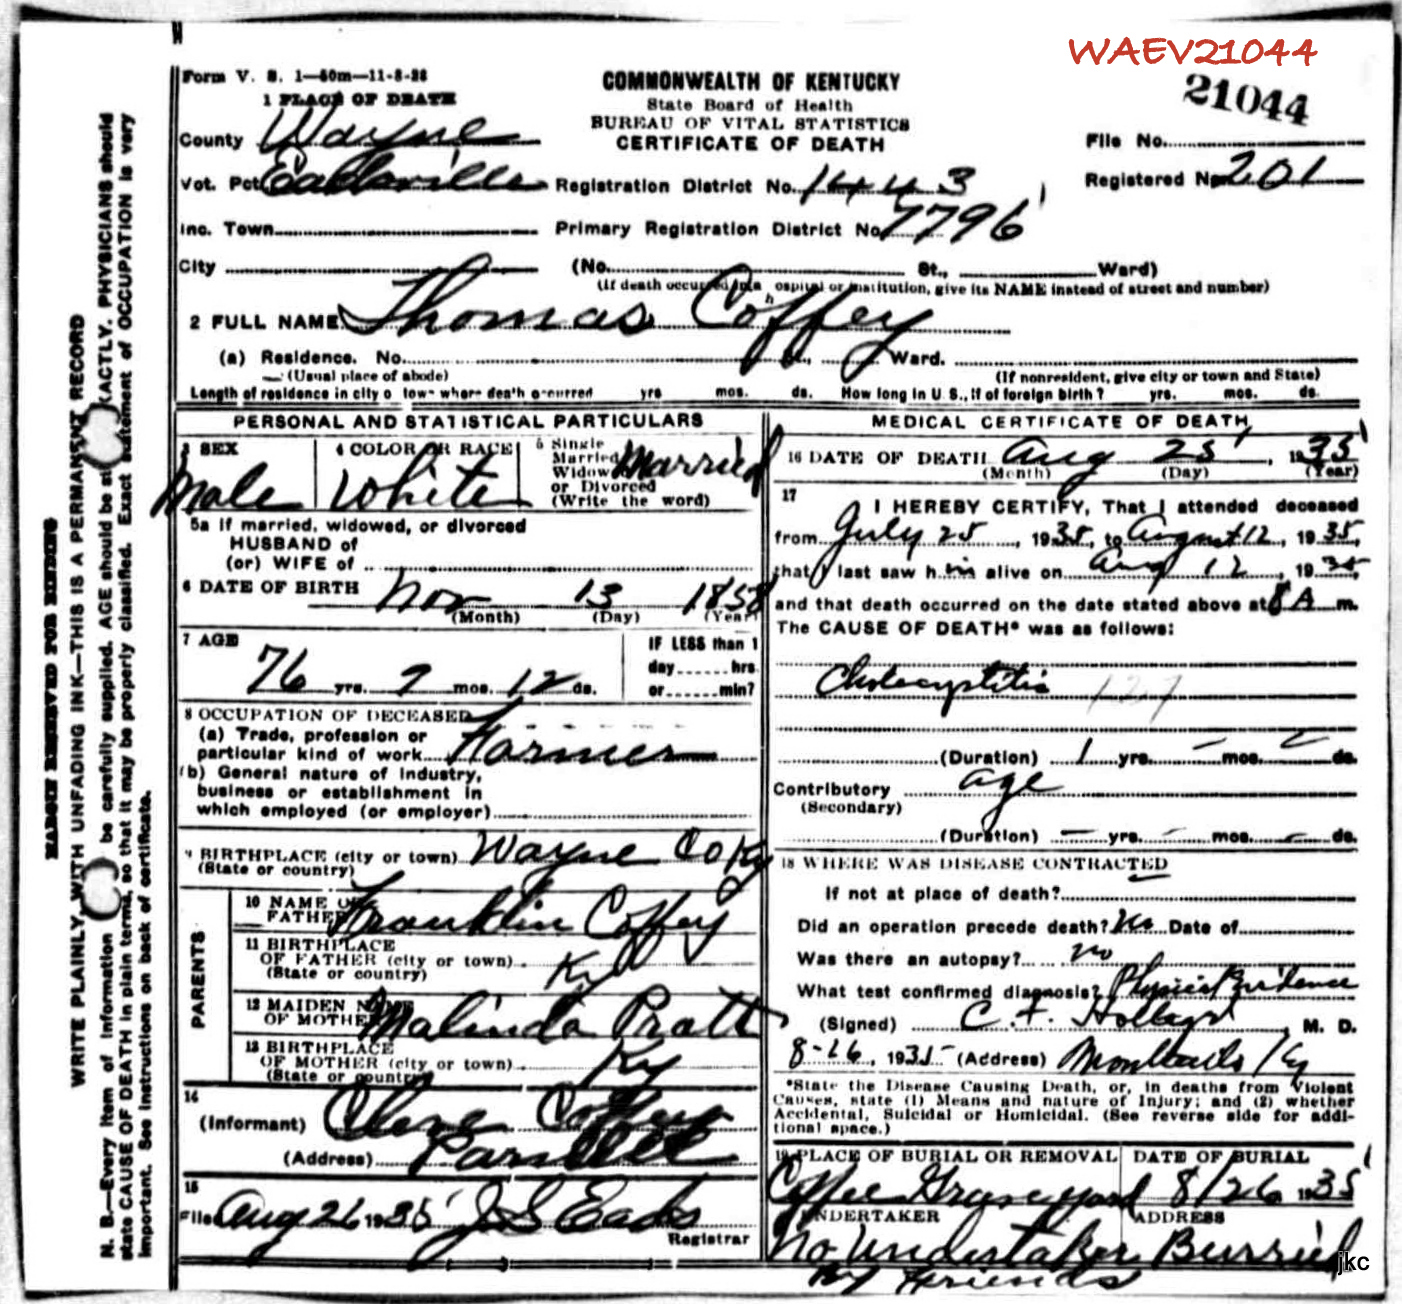 WAEV21044
Form V. S. 1—50m—11-8-28
COMMONWEALTH OF KENTUCKY
State Board of Health
BUREAU OF VITAL STATISTICS
CERTIFICATE OF DEATH
21044
1 PLACE OF DEATH
County Wayne
File No.
Vot. Pct Eadsville Registration District No. 1443
Registered No. 201
Inc. Town Primary Registration District No. 7796
City (No. St., Ward)
(If death occurred in a hospital or institution, give its NAME instead of street and number)
2 FULL NAME Thomas Coffey
(a) Residence. No. St., Ward.
(Usual place of abode) (If nonresident, give city or town and State)
Length of residence in city o town where death occurred yrs mos. ds. How long in U S., if of foreign birth? yrs. mos. ds.
PERSONAL AND STATISTICAL PARTICULARS
3 SEX Male
4 COLOR OR RACE White
5 Single
Married
Widowed
or Divorced
(Write the word) Married
5a If married, widowed, or divorced
HUSBAND of
(or) WIFE of
6 DATE OF BIRTH Nov 13 1858
(Month) (Day) (Year)
7 AGE
76 yrs. 9 mos. 12 ds.
IF LESS than 1
day hrs
or min?
8 OCCUPATION OF DECEASED
(a) Trade, profession or
particular kind of work Farmer
(b) General nature of industry,
business or establishment in
which employed (or employer)
9 BIRTHPLACE (city or town) Wayne Co Ky
(State or country)
PARENTS
10 NAME OF
FATHER Franklin Coffey
11 BIRTHPLACE
OF FATHER (city or town) Ky
(State or country)
12 MAIDEN NAME
OF MOTHER Malinda Pratt
13 BIRTHPLACE
OF MOTHER (city or town) Ky
(State or country)
14
(Informant) Coffey
(Address) Parnell
15
Filed Aug 26 1935 J. S. Eads
Registrar
MEDICAL CERTIFICATE OF DEATH
16 DATE OF DEATH Aug 25, 1935
(Month) (Day) (Year)
17
I HEREBY CERTIFY, That I attended deceased
from July 25, 1935, to August 12, 1935,
that I last saw him alive on Aug 12, 1935,
and that death occurred on the date stated above at 8 A m.
The CAUSE OF DEATH* was as follows:
Cholecystitis 127
(Duration) 1 yrs. mos. ds.
Contributory age
(Secondary)
(Duration) yrs. mos. ds.
18 WHERE WAS DISEASE CONTRACTED
If not at place of death?
Did an operation precede death? No Date of
Was there an autopsy? no
What test confirmed diagnosis? Physical Evidence
(Signed) C. M. D.
8-26, 1935 (Address) Monticello Ky
*State the Disease Causing Death, or, in deaths from Violent
Causes, state (1) Means and nature of Injury; and (2) whether
Accidental, Suicidal or Homicidal. (See reverse side for addi-
tional space.)
19 PLACE OF BURIAL OR REMOVAL Coffee Graveyard
DATE OF BURIAL 8/26 1935
UNDERTAKER ADDRESS
No Undertaker Burried
By Friends
jkc
MARGIN RESERVED FOR BINDING
WRITE PLAINLY, WITH UNFADING INK—THIS IS A PERMANENT RECORD
N. B.—Every item of information be carefully supplied. AGE should be st EXACTLY. PHYSICIANS should
state CAUSE OF DEATH in plain terms, so that it may be properly classified. Exact statement of OCCUPATION is very
important. See instructions on back of certificate.